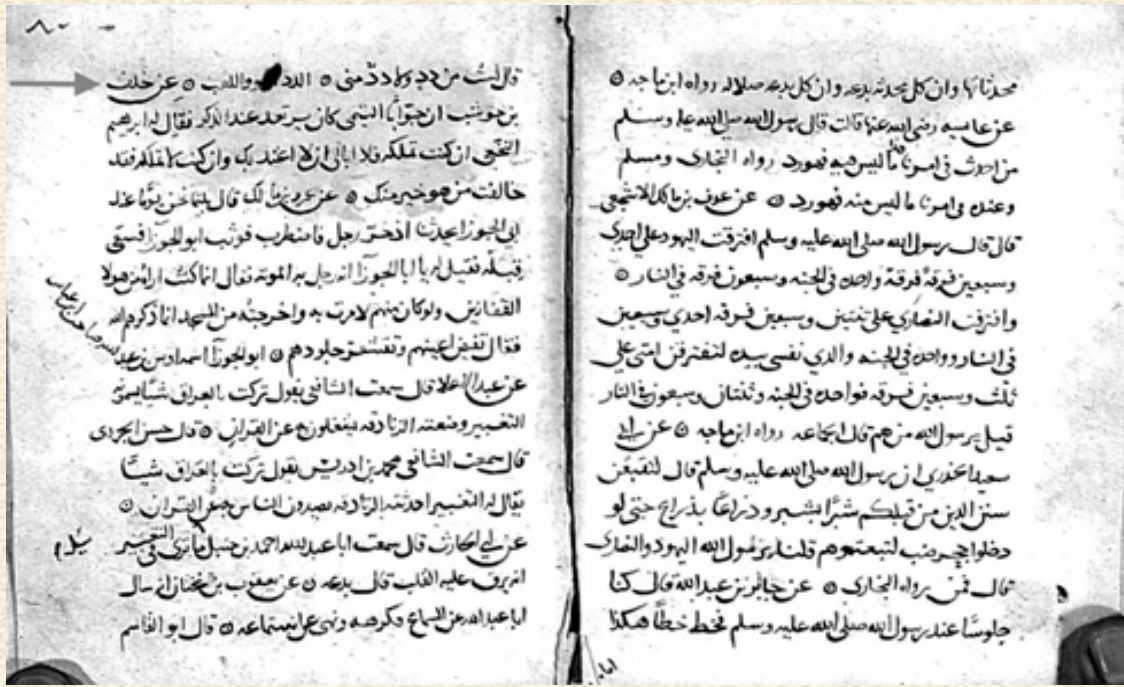 محدثاتها وان كل محدثة بدعه وان كل بدعه ضلاله رواه ابن ماجه ۞
عن عايشه رضي الله عنها قالت قال رسول الله صلي الله عليه وسلم
من احدث في امرنا هذا ما ليس فيه فهورد رواه البخاري ومسلم
وعنده في امرنا ما ليس منه فهورد ۞ عن عوف بن مالك الاشجعي
قال قال رسول الله صلى الله عليه وسلم افترقت اليهود على احدي
وسبعين فرقة فرقة واحده في الجنه وسبعون فرقه في النار ۞
وافترقت النصاري على ثنتين وسبعين فرقه احدي وسبعين
في النار وواحده في الجنه والذي نفسي بيده لتفترقن امتي علي
ثلث وسبعين فرقه فواحده في الجنه وثنتان وسبعون في النار
قيل يرسول الله من هم قال الجماعه رواه ابن ماجه ۞ عن ابي
سعيد الخدري ان رسول الله صلى الله عليه وسلم قال لتتبعن
سنن الذين من قبلكم شبرًا بشبر وذراعًا بذراع حتى لو
دخلوا جحر ضب لتبعتموهم قلنا يرسول الله اليهود والنصارى
قال فمن رواه البخاري ۞ عن جابر بن عبد الله قال كنا
جلوسًا عند رسول الله صلى الله عليه وسلم فخط خطًا هكذا
٨٠
قال لست من دد ولا دد منى ۞ الدد واللعب ۞ عن خلف
بن حوشب ان جوابًا التيمى كان يرتعد عند الذكر فقال له ابرهيم
النخعى ان كنت تملكه فلا ابالى ان لا اعتد بك وان كنت لا تملكه فقد
خالفت من هو خير منك ۞ عن عمرو بن مالك قال بينما نحن يومًا عند
ابي الجوزا يحدثنا اذ خر رجل فاضطرب فوثب ابو الجوزا فسعى
قبله فقيل له يا ابا الجوزا انه رجل به الموته فقال انما كنت اراه من هولا
القفازين ولو كان منهم لامرت به واخرجته من المسجد انما ذكرهم الله
فقال تفيض اعينهم وتقشعر جلودهم ۞ ابو الجوزا
عن عبد الاعلا قال سمعت الشافعي يقول تركت بالعراق شيًا يسمى
التغبير وضعته الزنادقه يشغلون به عن القران ۞ قال حسن الجروى
قال سمعت الشافعي محمد بن ادريس يقول تركت بالعراق شيًّا
يقال له التغبير احدثته الزنادقه يصدون الناس عن القران ۞
عن ابي الحارث قال سمعت ابا عبد الله احمد بن حنبل ما ترى في التغبير
انه يرق عليه القلب قال بدعه ۞ عن يعقوب بن بختان انه سال
ابا عبد الله عن السماع فكرهه ونهى عن استماعه ۞ قال ابو القاسم